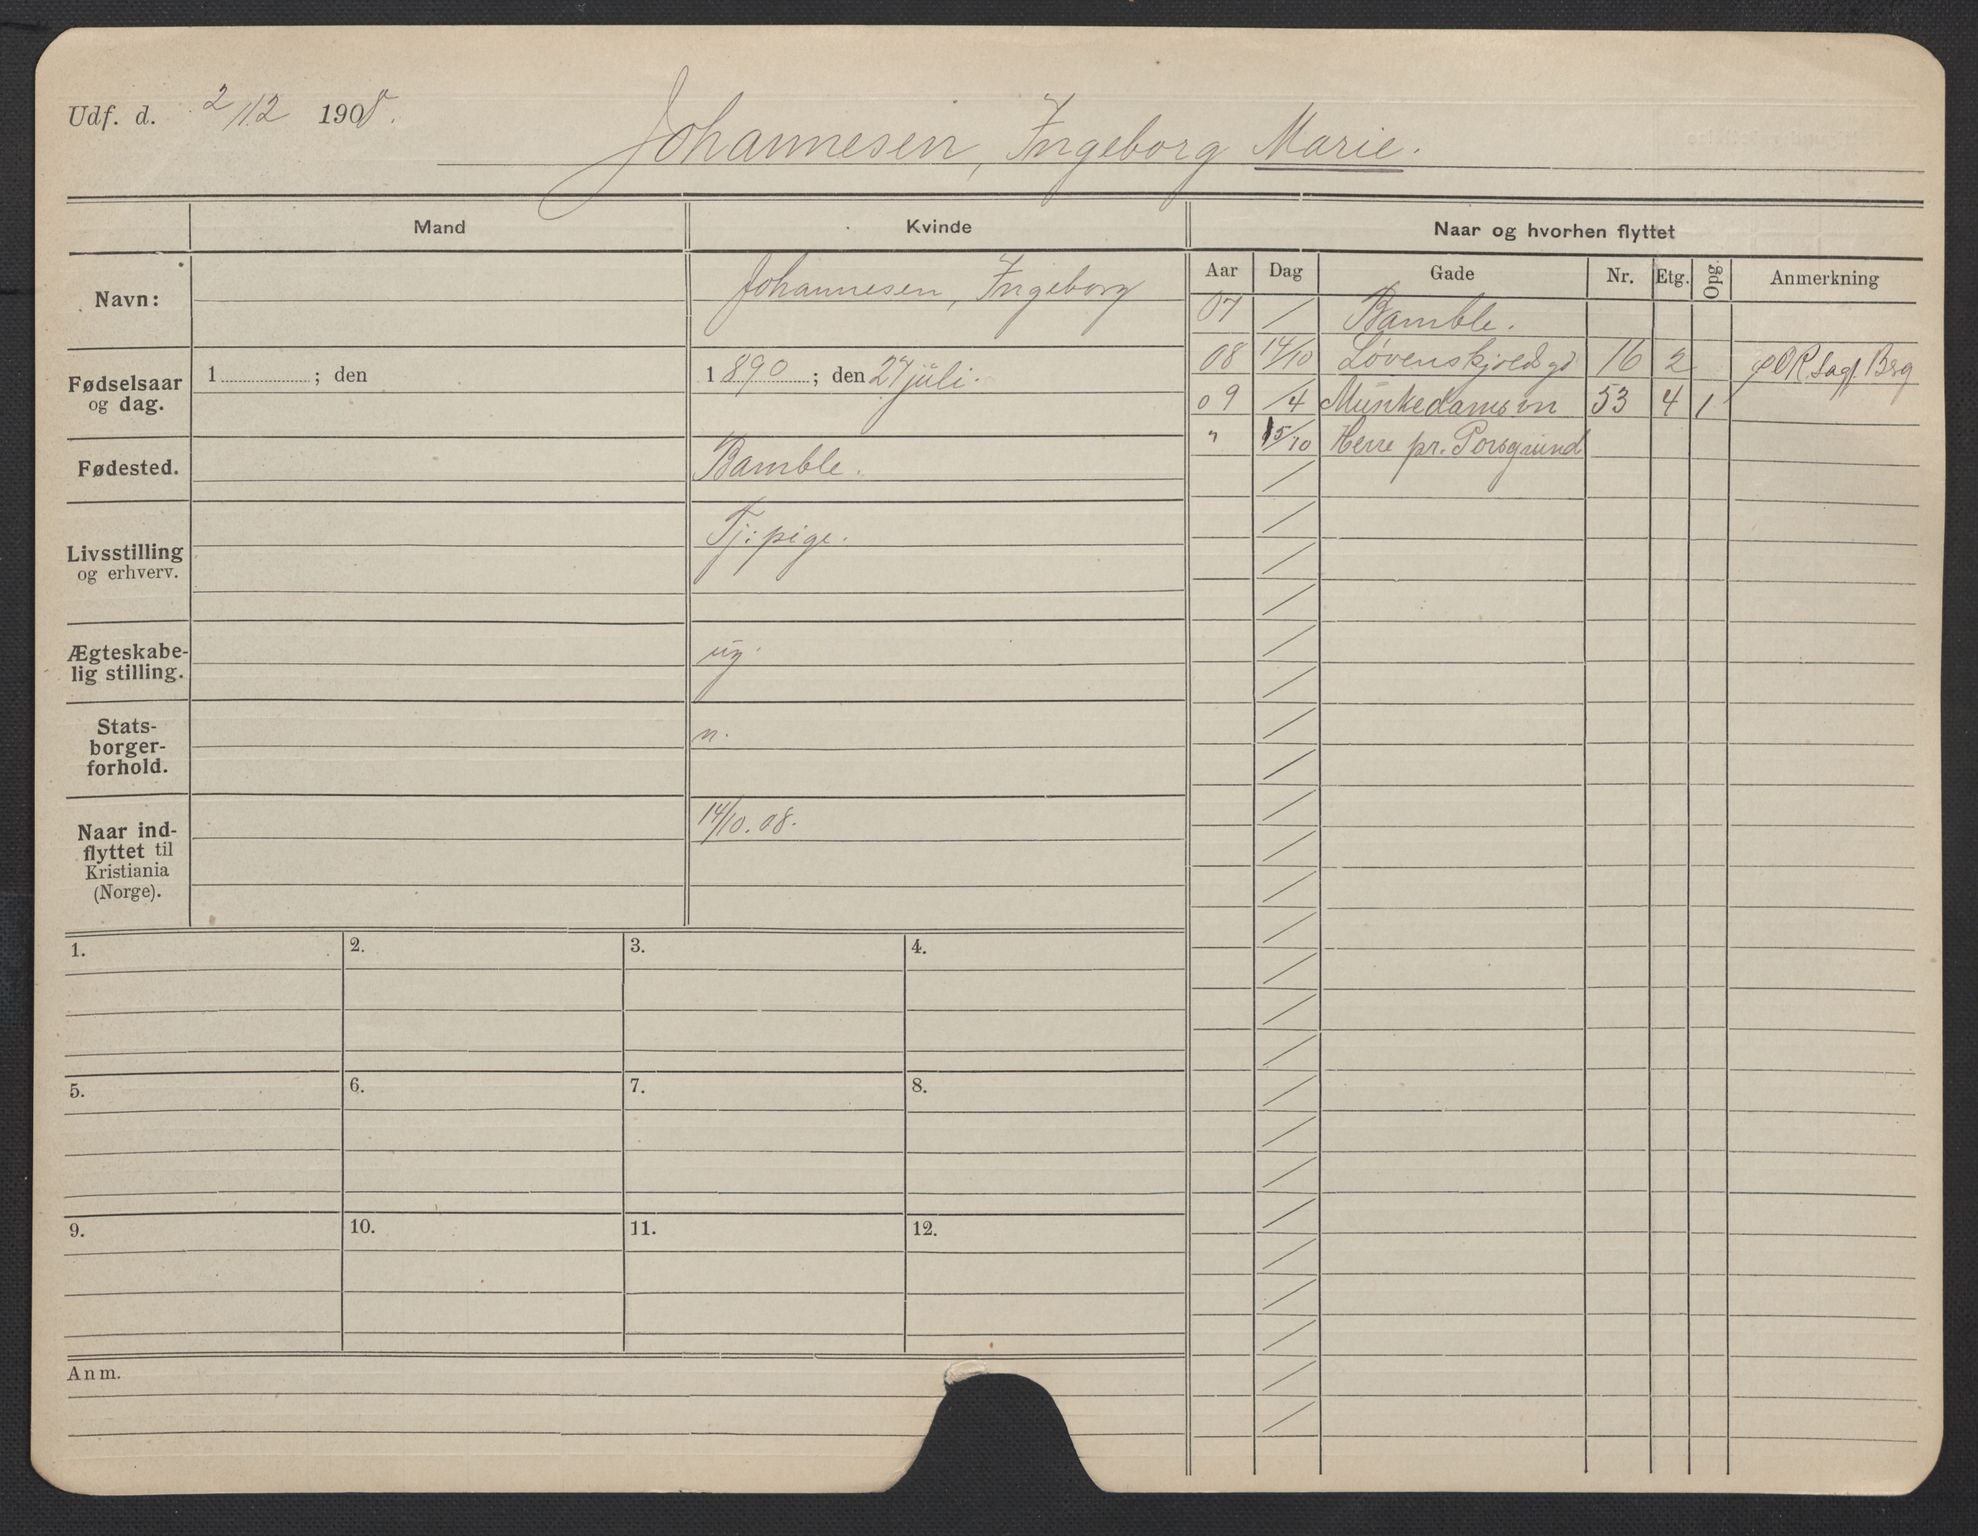 Udf. d. 2/12 1908.
Johannesen, Ingeborg Marie.
Mand
Kvinde
Navn:
Johannesen, Ingeborg
Fødselsaar
og dag.
1 ; den
1 890 ; den 27 juli.
Fødested.
Bamble.
Livsstilling
og erhverv.
Tj: pige.
Ægteskabe-
lig stilling.
ug.
Stats-
borger-
forhold.
n.
Naar ind-
flyttet til
Kristiania
(Norge).
14/10. 08.
1. 2. 3. 4.
5. 6. 7. 8.
9. 10. 11. 12.
Anm.
Naar og hvorhen flyttet
Aar Dag Gade Nr. Etg. Opg. Anmerkning
07 / Bamble.
08 14/10 Løvenskjoldsgd 16 2
09 /4 Munkedamsvn 53 4 1
" 15/10 Herre pr. Porsgrund